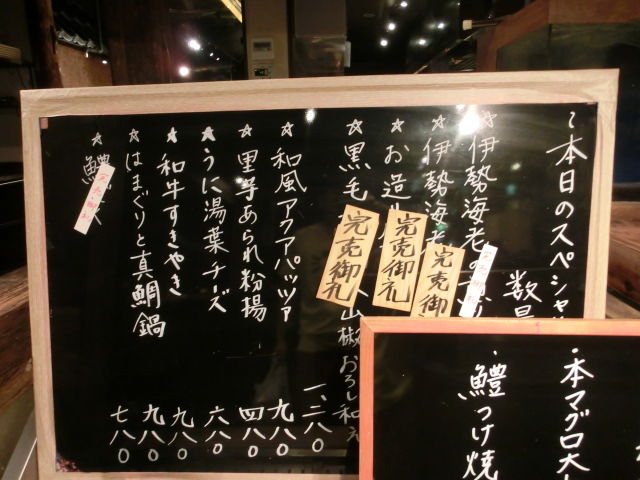 〜本日のスペシャ
数量
☆伊勢海老の
☆伊勢海老
☆お造り
☆黒毛 山椒おろし和え 一、二八〇
☆和風アクアパッツァ 九八〇
☆里芋あられ粉揚 四八〇
☆うに湯葉チーズ 六八〇
☆和牛すきやき 九八〇
☆はまぐりと真鯛鍋 九八〇
☆鱧 七八〇
完売御礼
完売御礼
完売御
完売御礼
・本マグロ大
・鱧つけ焼